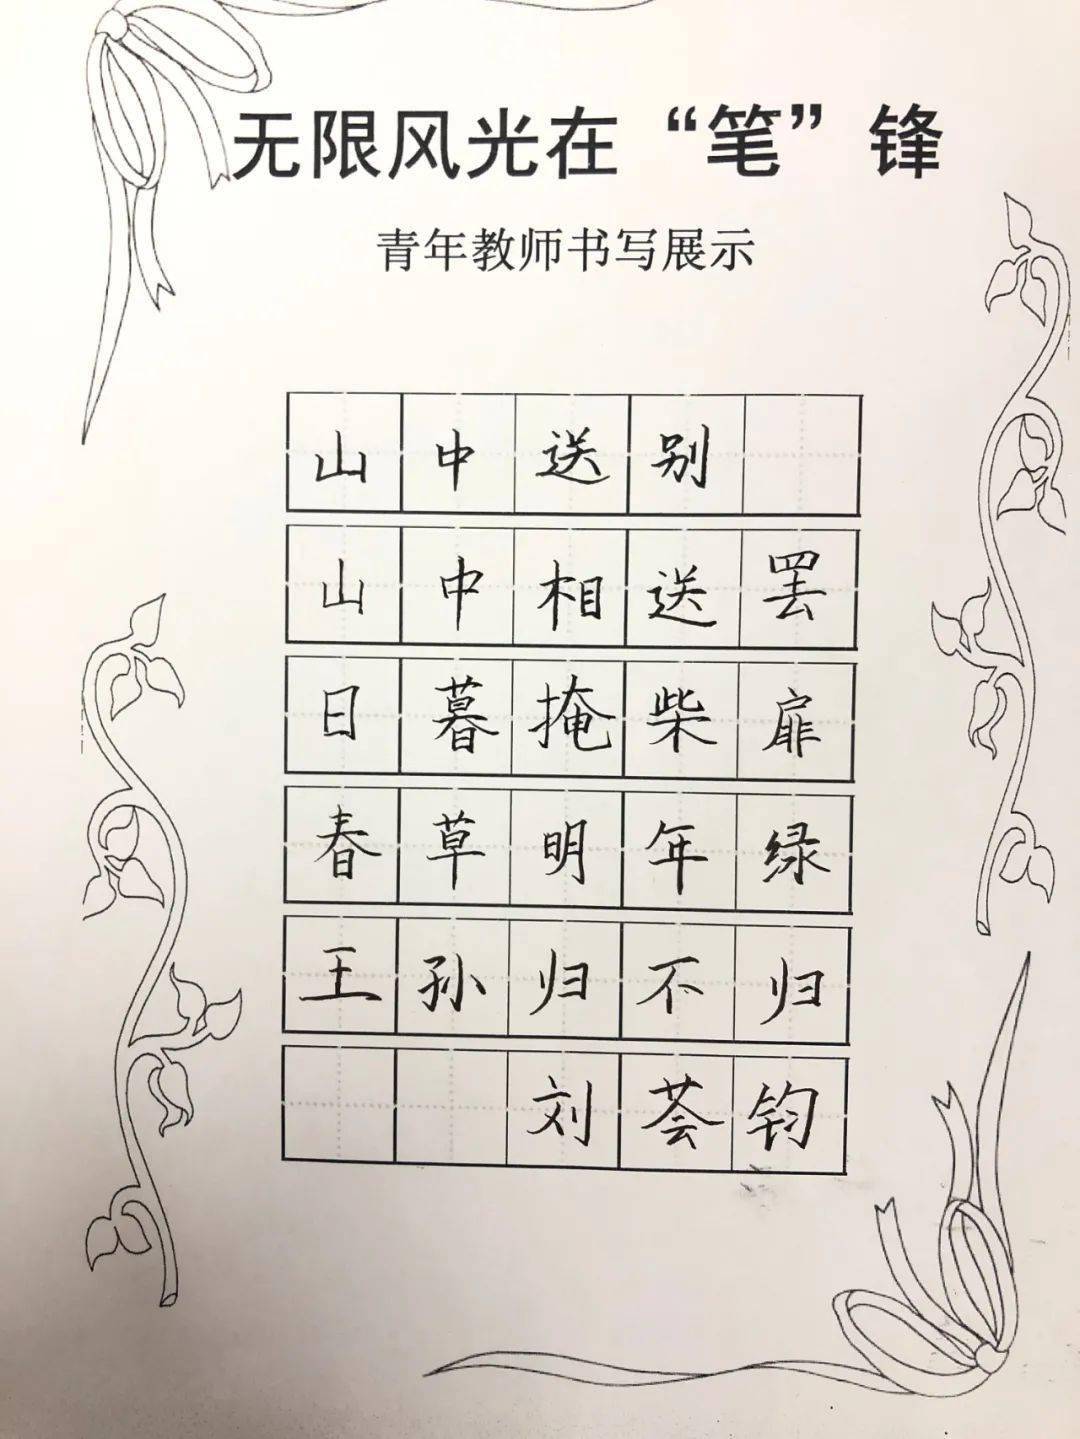 无限风光在“笔”锋
青年教师书写展示
山中送别
山中相送罢
日暮掩柴扉
春草明年绿
王孙归不归
刘荟钧